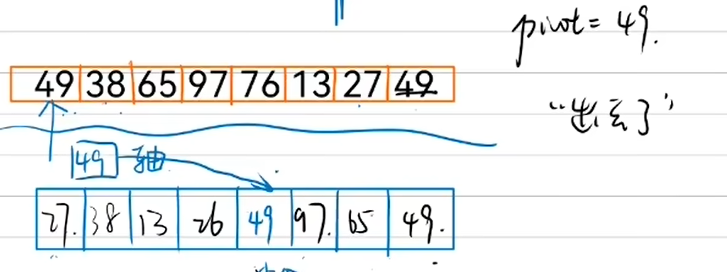 pivot = 49.
49 38 65 97 76 13 27 49
"出去了"
49 轴
27. 38 13 26 49 97. 65 49.